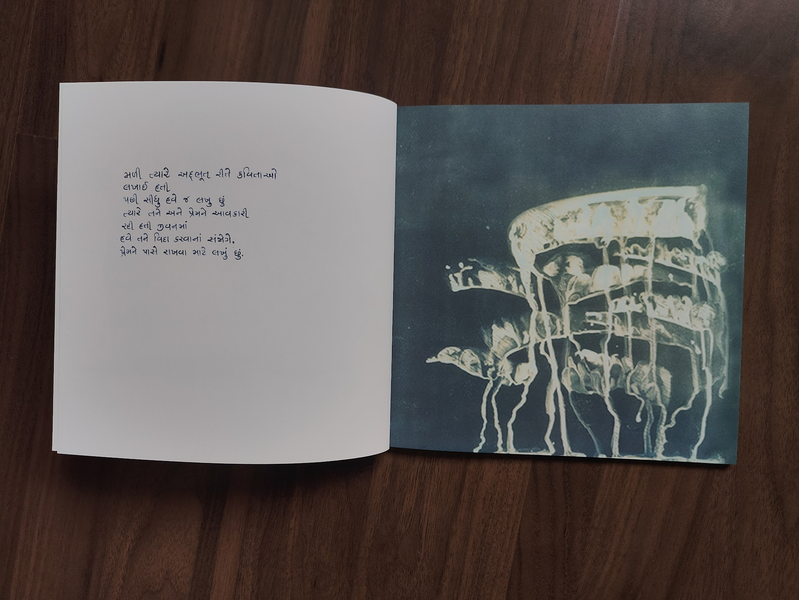 મળી ત્યારે અદ્ભૂત રીતે કવિતાઓ
લખાઈ હતી
પછી સીધુ હવે જ લખુ છું
ત્યારે તને અને પ્રેમને આવકારી
રહી હતી જીવનમાં
હવે તને વિદા કરવાનાં સંજોગે,
પ્રેમને પાસે રાખવા માટે લખું છું.